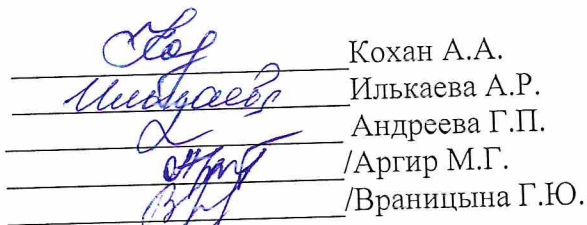 Кохан А.А.
Илькаева А.Р.
Андреева Г.П.
/Аргир М.Г.
/Враницына Г.Ю.